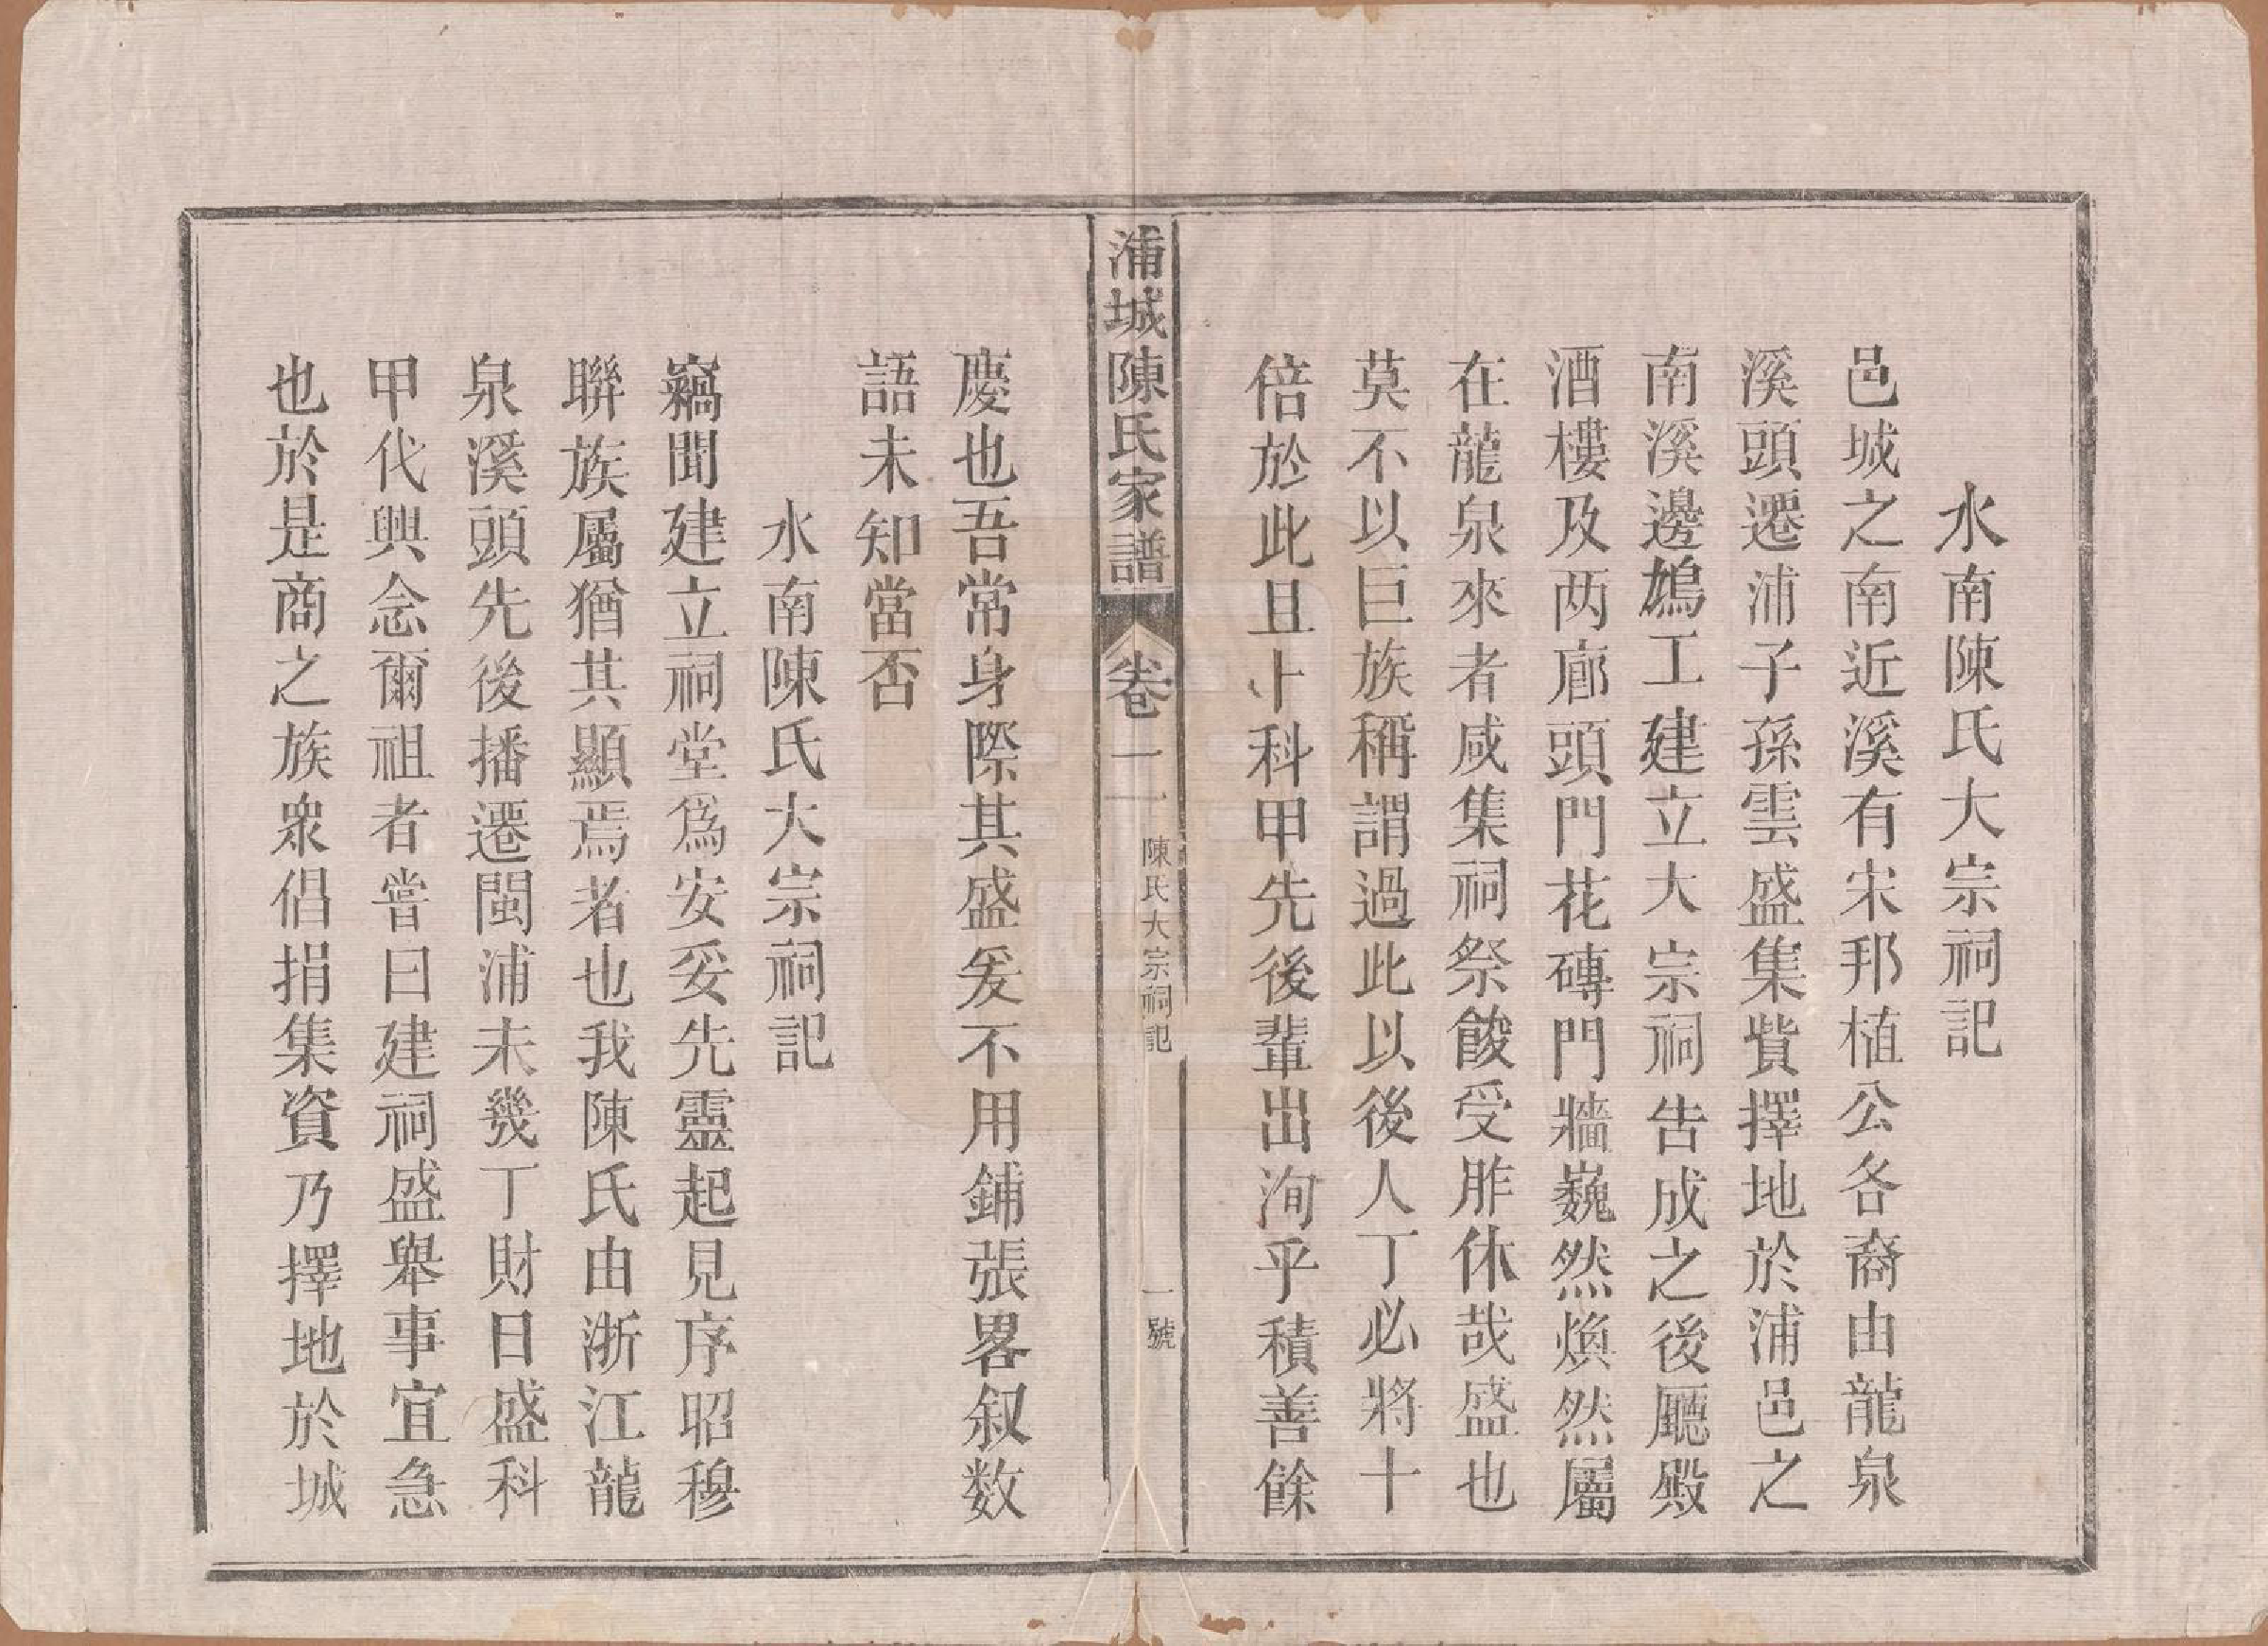 水南陳氏大宗祠記
邑城之南近溪有宋邦植公各裔由龍泉
溪頭遷浦子孫雲盛集貲擇地於浦邑之
南溪邊鳩工建立大宗祠告成之後廳殿
酒樓及两廊頭門花磚門牆巍然煥然屬
在龍泉來者咸集祠祭餕受胙休哉盛也
莫不以巨族稱謂過此以後人丁必將十
倍於此且卜科甲先後輩出洵乎積善餘
浦城陳氏家譜
卷一
陳氏大宗祠記
一號
慶也吾常身際其盛爰不用鋪張畧叙数
語未知當否
水南陳氏大宗祠記
竊聞建立祠堂爲安妥先靈起見序昭穆
聯族屬猶其顯焉者也我陳氏由浙江龍
泉溪頭先後播遷閩浦未幾丁財日盛科
甲代興念爾祖者嘗曰建祠盛舉事宜急
也於是商之族衆倡捐集資乃擇地於城